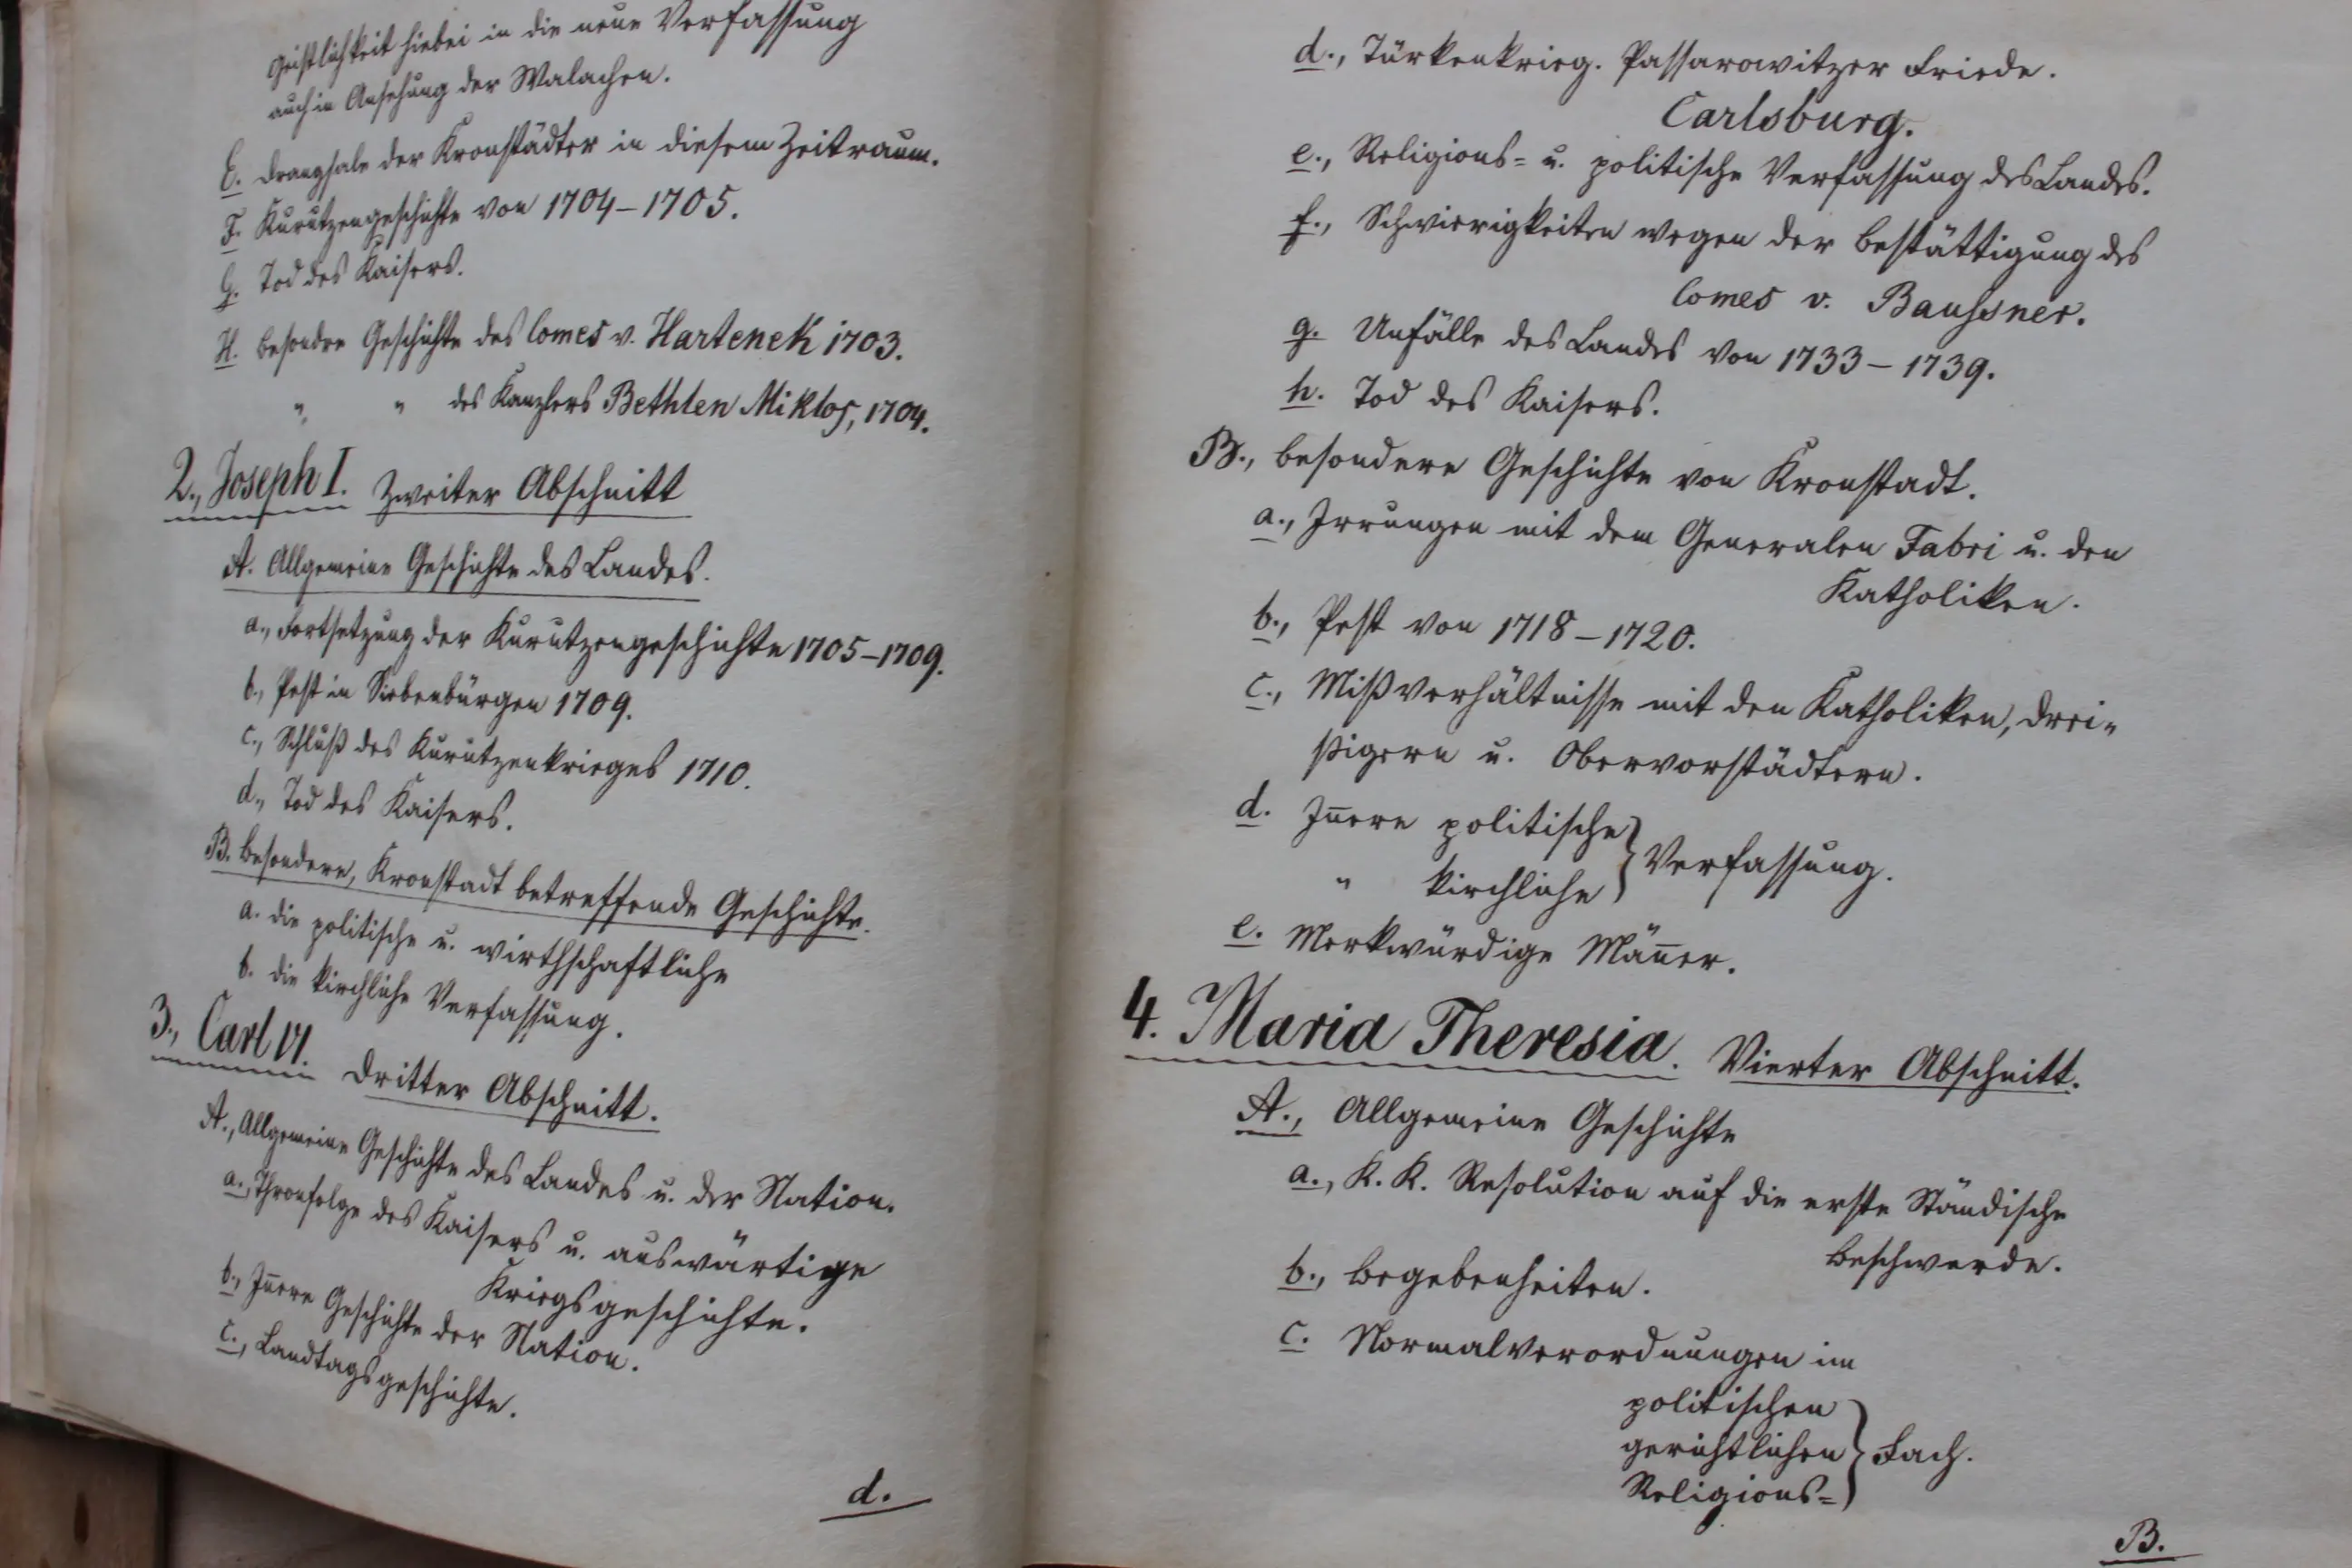 Geistlichkeit hiebei in die neue Verfassung
auch in Ansehung der Walachen.
E. Drangsale der Kronstädter in diesem Zeitraum.
F. Kurutzengeschichte von 1704–1705.
G. Tod des Kaisers.
H. besondre Geschichte des Comes v. Hartenek 1703.
" " des Kanzlers Bethlen Miklos, 1704.
2., Joseph I. Zweiter Abschnitt
A. Allgemeine Geschichte des Landes.
a., Fortsetzung der Kurutzengeschichte 1705–1709.
b., Pest in Siebenbürgen 1709.
c., Schluß des Kurutzenkrieges 1710.
d., Tod des Kaisers.
B. besondere, Kronstadt betreffende Geschichte.
a. die politische u. wirthschaftliche
b. die kirchliche Verfassung.
3., Carl VI. Dritter Abschnitt.
A., Allgemeine Geschichte des Landes u. der Nation.
a., Thronfolge des Kaisers u. auswärtige
Kriegsgeschichte.
b., In̅ere Geschichte der Nation.
c., Landtagsgeschichte.
d.
d., Türkenkrieg. Passarowitzer Friede.
Carlsburg.
e., Religions= u. politische Verfassung des Landes.
f., Schwierigkeiten wegen der Bestättigung des
Comes v. Baußner.
g. Unfälle des Landes von 1733–1739.
h. Tod des Kaisers.
B., besondere Geschichte von Kronstadt.
a., Irrungen mit dem Generalen Fabri u. den
Katholiken.
b., Pest von 1718–1720.
c., Mißverhältnisse mit den Katholiken, Drei=
ßigern u. Obervorstädtern.
d. In̅ere politische
" kirchliche } Verfassung.
e. Merkwürdige Män̅er.
4. Maria Theresia. Vierter Abschnitt.
A., Allgemeine Geschichte
a., K. K. Resolution auf die erste Ständische
Beschwerde.
b., Begebenheiten.
c. Normalverordnungen im
politischen
gerichtlichen } Fach.
Religions=
B.